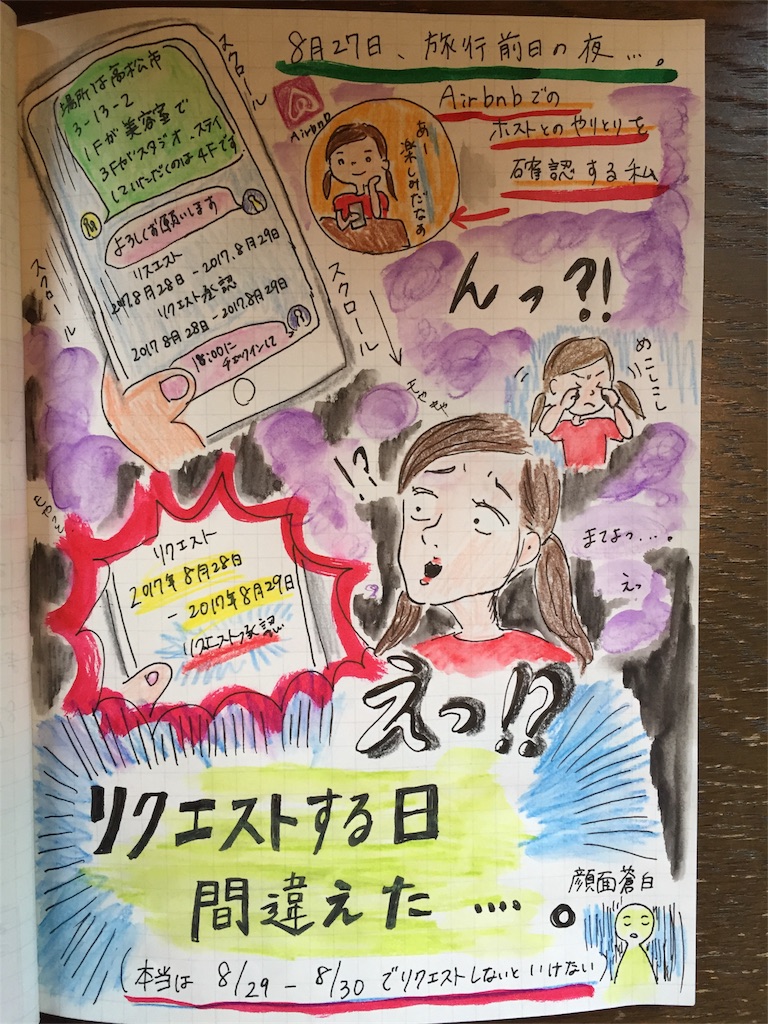 8月27日、旅行前日の夜…。
Airbnbでの
ホストとのやりとりを
確認する私
Airbnb
あー
楽しみだなぁ
スクロール
場所は高松市
3-13-2
1Fが美容室で
3Fがスタジオ、ステイ
していただくのは4Fです。
よろしくお願いします
リクエスト
2017.8月28日-2017.8月29日
リクエスト承認
2017 8月28日-2017.8月29日
18:00に
チェックインして
スクロール
スクロール
んっ?!
めこしこし
!?
リクエスト
2017年8月28日
-2017年8月29日
リクエスト承認
まてよっ…。
えっ
えっ!?
リクエストする日
間違えた….。
顔面蒼白
(本当は 8/29-8/30でリクエストしないといけない)